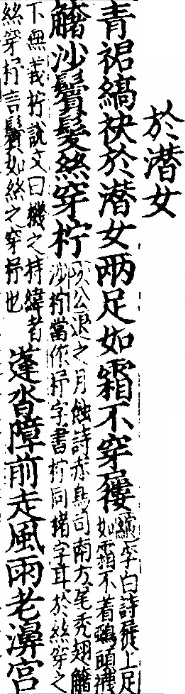 於潛女
青裙縞袂於潛女兩足如霜不穿屨
縯李白詩屐上足
如霜不着鵶頭襪
觰沙鬢髮絲穿柠
次公退之月蝕詩赤鳥司南方尾秃翅觰
沙柠當作杼字書柠同楮字耳於絲穿之
下無義杼說文曰機之持緯者
絲穿杼言鬢如絲之穿杼也
蓬沓障前走風雨老濞宮